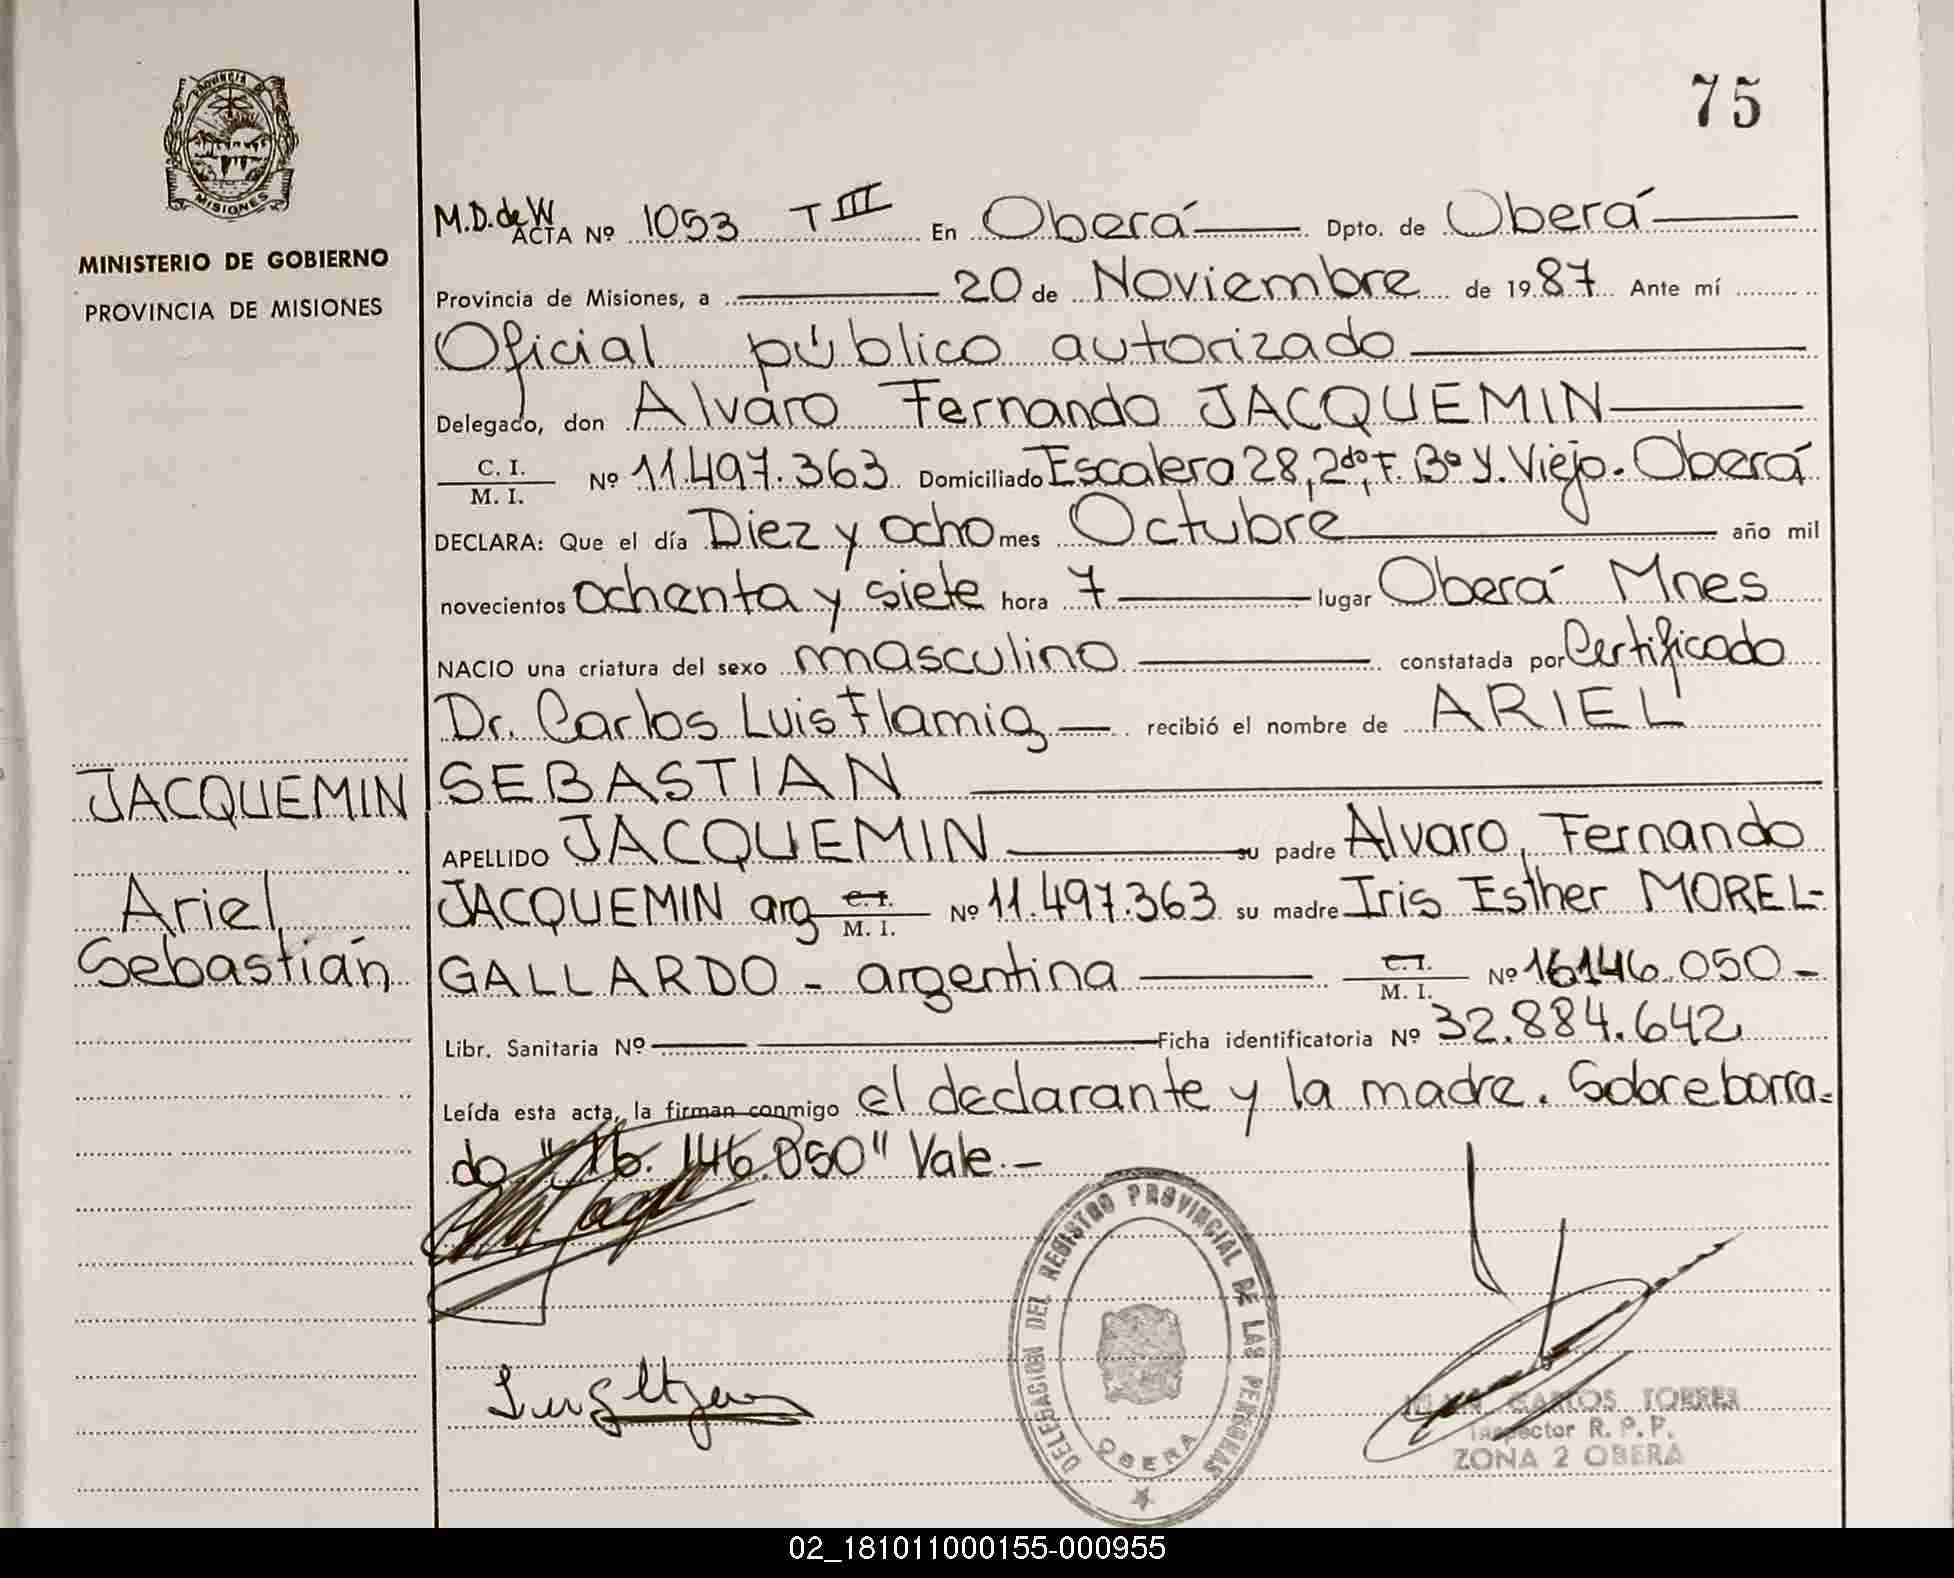 75
PROVINCIA DE
MISIONES
MINISTERIO DE GOBIERNO
PROVINCIA DE MISIONES
M.D. de W
ACTA Nº 1053 T III En Oberá Dpto. de Oberá
Provincia de Misiones, a 20 de Noviembre de 1987 Ante mí
Oficial público autorizado
Delegado, don Alvaro Fernando JACQUEMIN
C. I. / M. I. Nº 11.497.363 Domiciliado Escalera 28, 2do, F. Bº Y. Viejo. Oberá
DECLARA: Que el día Diez y ocho mes Octubre año mil
novecientos ochenta y siete hora 7 lugar Oberá Mnes
NACIO una criatura del sexo masculino constatada por Certificado
Dr. Carlos Luis Flamig recibió el nombre de ARIEL
SEBASTIAN
APELLIDO JACQUEMIN su padre Alvaro Fernando
JACQUEMIN arg C. I. / M. I. Nº 11.497.363 su madre Iris Esther MOREL-
GALLARDO - argentina C. I. / M. I. Nº 16146.050 -
Libr. Sanitaria Nº Ficha identificatoria Nº 32.884.642
Leída esta acta, la firman conmigo el declarante y la madre. Sobreborra-
do "16.146.050" Vale.-
JACQUEMIN
Ariel
Sebastián
DELEGACION DEL REGISTRO PROVINCIAL DE LAS PERSONAS
OBERA
CARLOS TORRES
Inspector R. P. P.
ZONA 2 OBERA
02_181011000155-000955